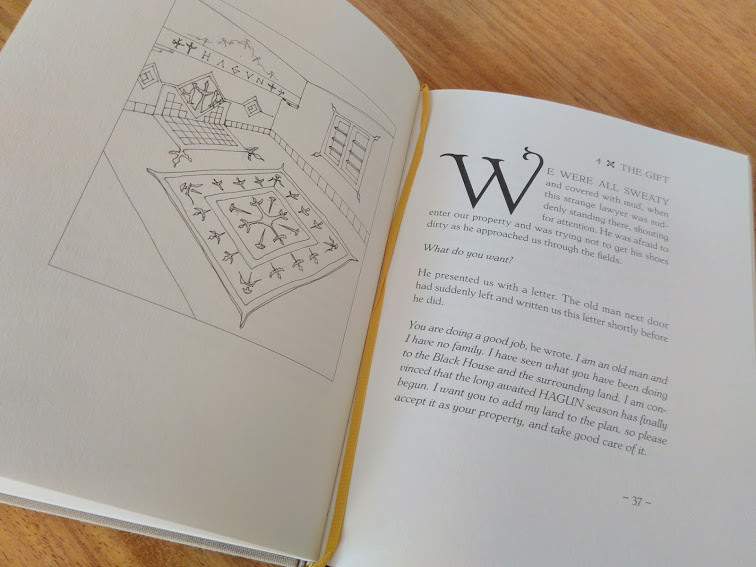 HAGUN
4 ✤ THE GIFT
WE WERE ALL SWEATY
and covered with mud, when
this strange lawyer was sud-
denly standing there, shouting
for attention. He was afraid to
enter our property and was trying not to get his shoes
dirty as he approached us through the fields.
What do you want?
He presented us with a letter. The old man next door
had suddenly left and written us this letter shortly before
he did.
You are doing a good job, he wrote. I am an old man and
I have no family. I have seen what you have been doing
to the Black House and the surrounding land. I am con-
vinced that the long awaited HAGUN season has finally
begun. I want you to add my land to the plan, so please
accept it as your property, and take good care of it.
– 37 –